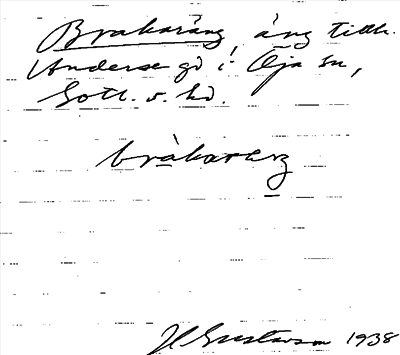 Brakaräng, äng tillh.
Anderse gd i Öja sn,
Gotl. s. hd.
bràkarεŋ
H Gustavson 1938